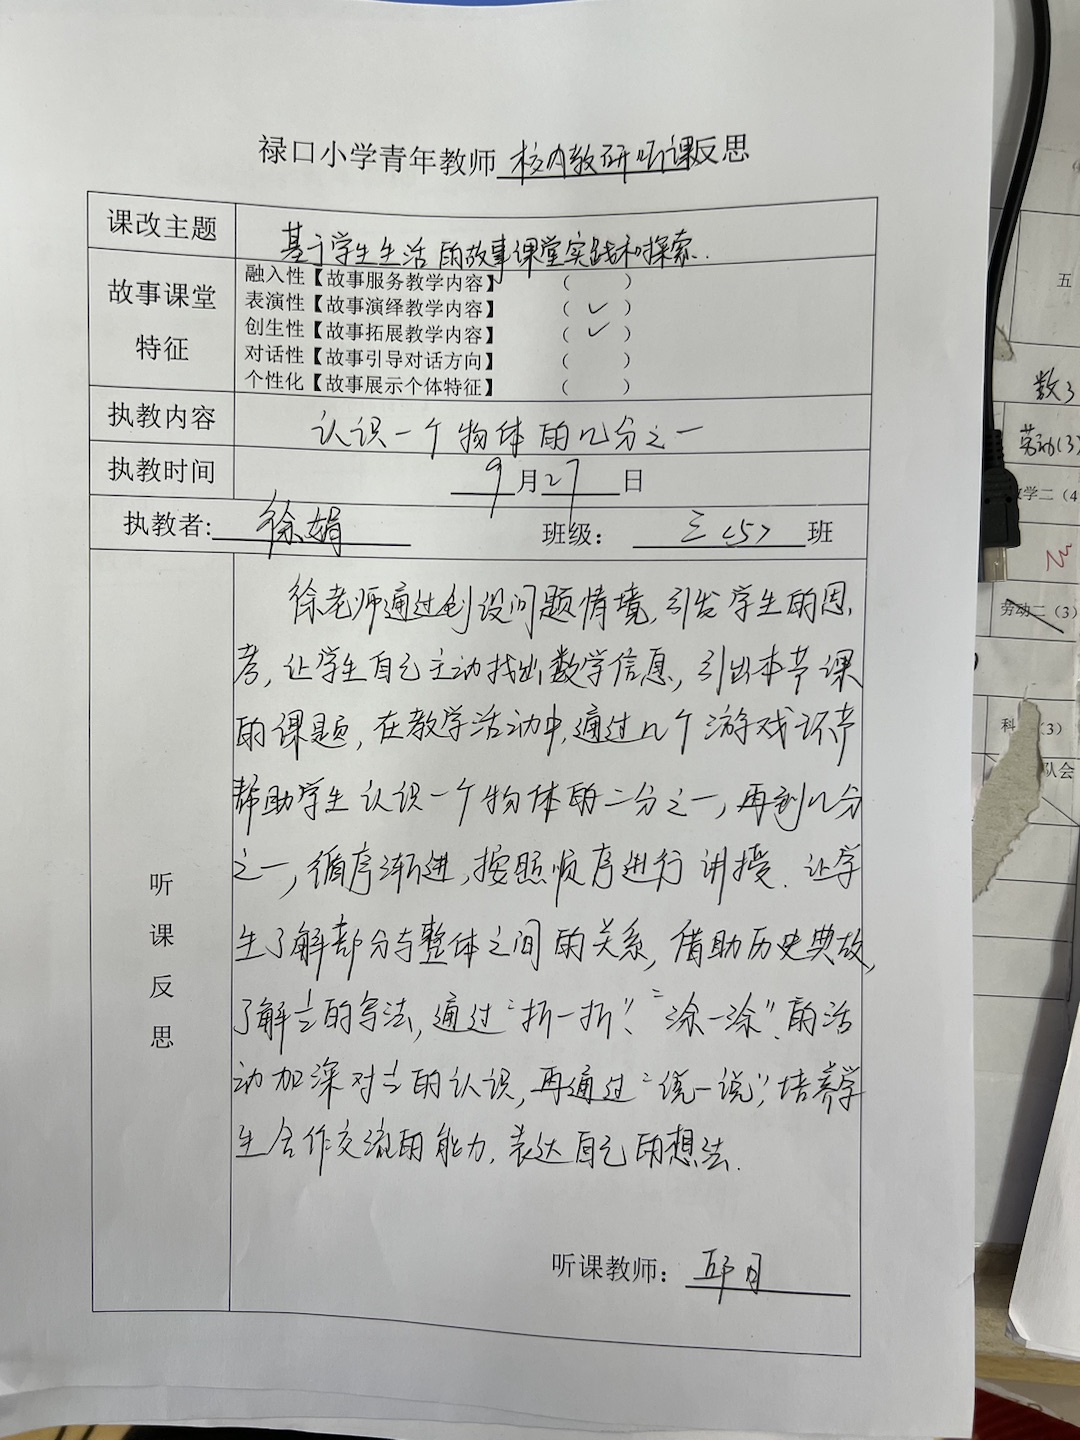 禄口小学青年教师校内教研听课反思
课改主题
基于学生生活的故事课堂实践和探索.
故事课堂
特征
融入性【故事服务教学内容】 （ ）
表演性【故事演绎教学内容】 （ ✓ ）
创生性【故事拓展教学内容】 （ ✓ ）
对话性【故事引导对话方向】 （ ）
个性化【故事展示个体特征】 （ ）
执教内容 认识一个物体的几分之一
执教时间 9月27日
执教者: 徐娟 班级： 三（5） 班
听
课
反
思
徐老师通过创设问题情境，引发学生的思
考，让学生自己主动找出数学信息，引出本节课
的课题，在教学活动中，通过几个游戏环节
帮助学生认识一个物体的二分之一，再到几分
之一，循序渐进，按照顺序进行讲授．让学
生了解部分与整体之间的关系，借助历史典故，
了解½的写法，通过“折一折”、“涂一涂”的活
动加深对½的认识，再通过“说一说”，培养学
生合作交流的能力，表达自己的想法．
听课教师： 邱月
五
数
劳动(3)
数学二（4
劳动二（3）
科
（3）
队会